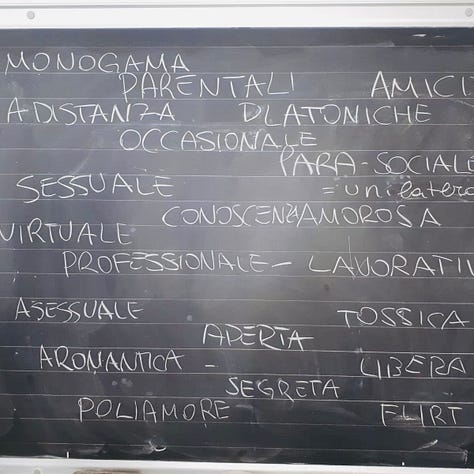 MONOGAMA
PARENTALI AMICI
A DISTANZA PLATONICHE
OCCASIONALE
PARA-SOCIALE
SESSUALE = unilatera
CONOSCENZA AMOROSA
VIRTUALE
PROFESSIONALE - LAVORATIV
ASESSUALE TOSSICA
APERTA
AROMANTICA - LIBERA
SEGRETA
POLIAMORE FLIRT